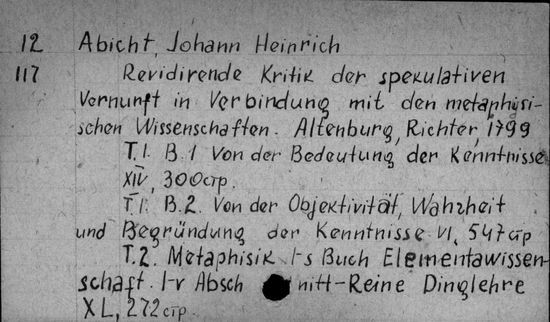 12 Abicht, Johann Heinrich
117 Revidirende Kritik der spekulativen
Vernunft in Verbindung mit den metaphysi-
schen Wissenschaften. Altenburg, Richter, 1799
T.1. B.1 Von der Bedeutung der Kenntnisse
XIV, 300стр.
T.1. B.2. Von der Objektivität, Wahrheit
und Begründung der Kenntnisse VI, 547стр
T.2. Metaphisik 1-s Buch Elementawissen-
schaft. 1-r Absch nitt-Reine Dinglehre
XL, 272стр.